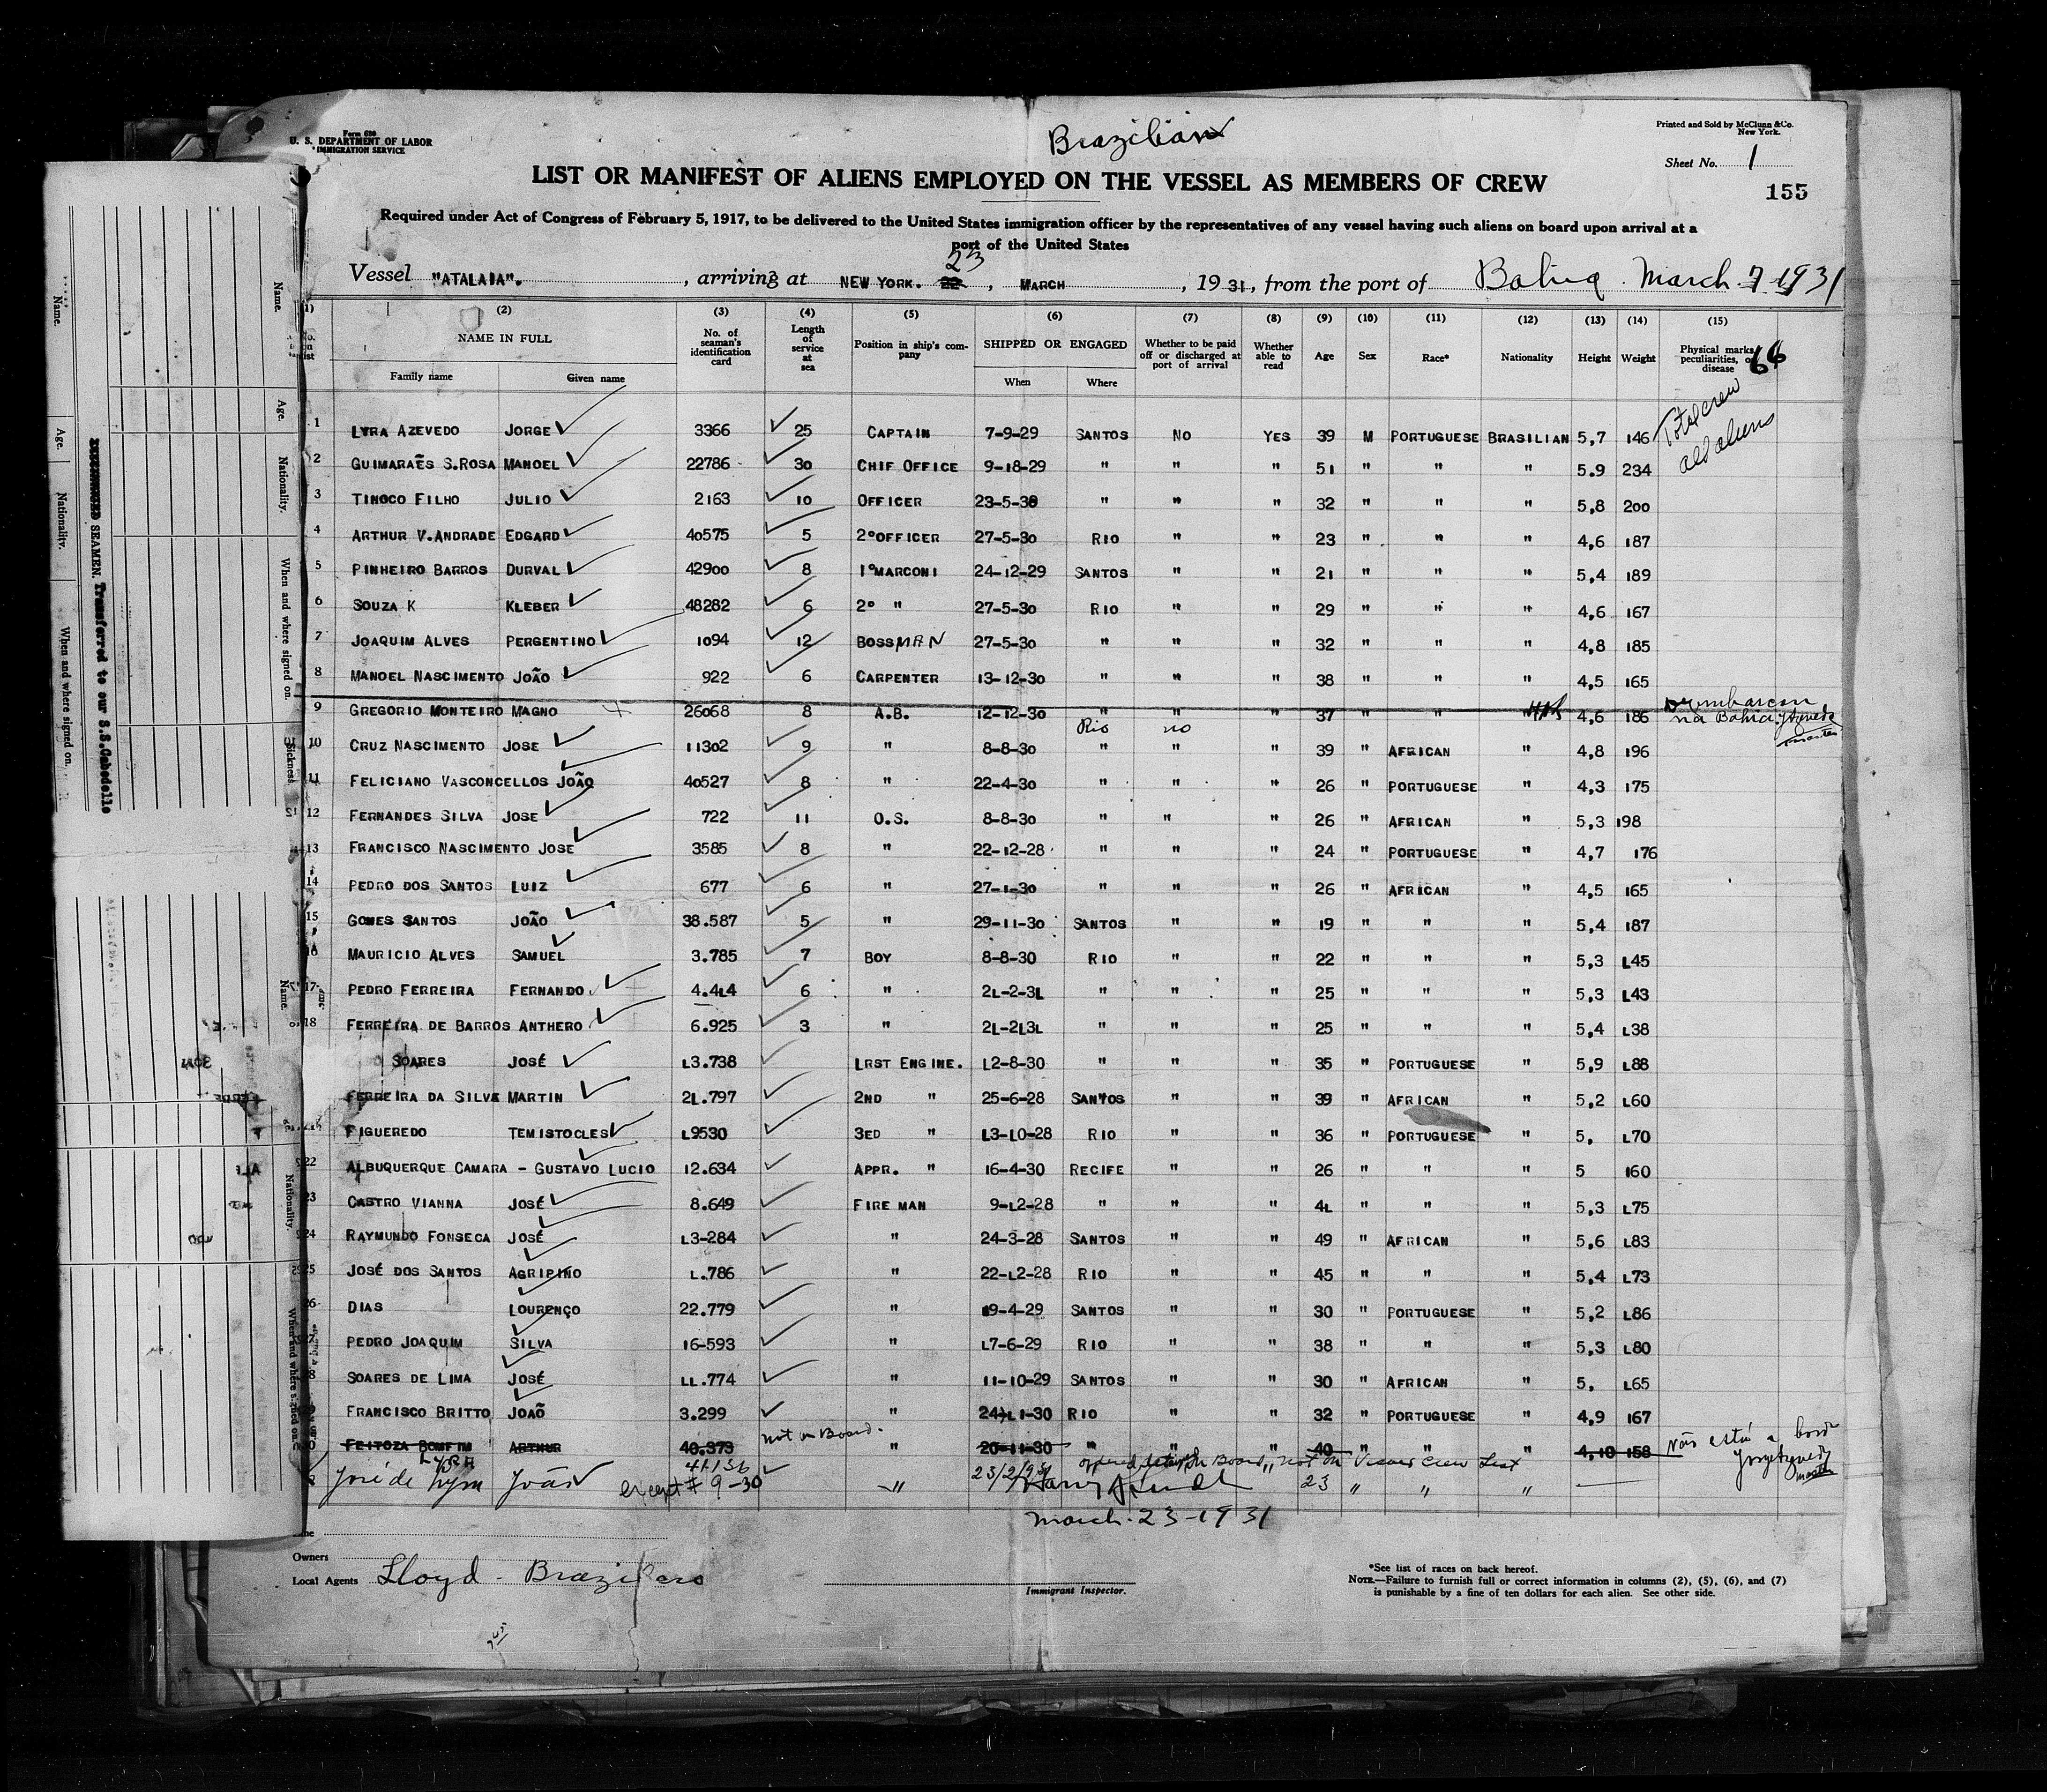 Form 630
U. S. DEPARTMENT OF LABOR
IMMIGRATION SERVICE
Brazilian
Printed and Sold by McClunn & Co.
New York.
Sheet No. 1
155
LIST OR MANIFEST OF ALIENS EMPLOYED ON THE VESSEL AS MEMBERS OF CREW
Required under Act of Congress of February 5, 1917, to be delivered to the United States immigration officer by the representatives of any vessel having such aliens on board upon arrival at a
port of the United States
23
Vessel "ATALAIA". , arriving at NEW YORK. 22 , MARCH , 1931, from the port of Bahia March 7 1931
(1) (2) (3) (4) (5) (6) (7) (8) (9) (10) (11) (12) (13) (14) (15)
NAME IN FULL No. of seaman's identification card Length of service at sea Position in ship's company SHIPPED OR ENGAGED Whether to be paid off or discharged at port of arrival Whether able to read Age Sex Race* Nationality Height Weight Physical marks, peculiarities, or disease
Family name Given name When Where
66
Total crew
all aliens
1 LYRA AZEVEDO JORGE 3366 25 CAPTAIN 7-9-29 SANTOS NO YES 39 M PORTUGUESE BRASILIAN 5,7 146
2 GUIMARAẼS S.ROSA MANOEL 22786 30 CHIF OFFICE 9-18-29 " " " 51 " " " 5.9 234
3 TINOCO FILHO JULIO 2163 10 OFFICER 23-5-30 " " " 32 " " " 5,8 200
4 ARTHUR V.ANDRADE EDGARD 40575 5 2ºOFFICER 27-5-30 RIO " " 23 " " " 4,6 187
5 PINHEIRO BARROS DURVAL 42900 8 1ºMARCONI 24-12-29 SANTOS " " 21 " " " 5,4 189
6 SOUZA K KLEBER 48282 6 2º " 27-5-30 RIO " " 29 " " " 4,6 167
7 JOAQUIM ALVES PERGENTINO 1094 12 BOSSMAN 27-5-30 " " " 32 " " " 4,8 185
8 MANOEL NASCIMENTO JOÃO 922 6 CARPENTER 13-12-30 " " " 38 " " " 4,5 165
9 GREGORIO MONTEIRO MAGNO 26068 8 A.B. 12-12-30 " " " 37 " " 4,6 186 Desembarcou
na Bahia
Rio no
10 CRUZ NASCIMENTO JOSE 11302 9 " 8-8-30 " " " 39 " AFRICAN " 4,8 196
11 FELICIANO VASCONCELLOS JOÃO 40527 8 " 22-4-30 " " " 26 " PORTUGUESE " 4,3 175
12 FERNANDES SILVA JOSE 722 11 O.S. 8-8-30 " " " 26 " AFRICAN " 5,3 198
13 FRANCISCO NASCIMENTO JOSE 3585 8 " 22-12-28 " " " 24 " PORTUGUESE " 4,7 176
14 PEDRO DOS SANTOS LUIZ 677 6 " 27-1-30 " " " 26 " AFRICAN " 4,5 165
15 GOMES SANTOS JOÃO 38.587 5 " 29-11-30 SANTOS " " 19 " " " 5,4 187
16 MAURICIO ALVES SAMUEL 3.785 7 BOY 8-8-30 RIO " " 22 " " " 5,3 L45
17 PEDRO FERREIRA FERNANDO. 4.4L4 6 " 2L-2-3L " " " 25 " " " 5,3 L43
18 FERREIRA DE BARROS ANTHERO 6.925 3 " 2L-2L3L " " " 25 " " " 5,4 L38
SOARES JOSÉ L3.738 LRST ENGINE. L2-8-30 " " " 35 " PORTUGUESE " 5,9 L88
FERREIRA DA SILVA MARTIN 2L.797 2ND " 25-6-28 SANTOS " " 39 " AFRICAN " 5,2 L60
FIGUEREDO TEMISTOCLES L9530 3ED " L3-L0-28 RIO " " 36 " PORTUGUESE " 5, L70
22 ALBUQUERQUE CAMARA - GUSTAVO LUCIO 12.634 APPR. " 16-4-30 RECIFE " " 26 " " " 5 160
23 CASTRO VIANNA JOSÉ 8.649 FIRE MAN 9-L2-28 " " " 4L " " " 5,3 L75
24 RAYMUNDO FONSECA JOSÉ L3-284 " 24-3-28 SANTOS " " 49 " AFRICAN " 5,6 L83
25 JOSÉ DOS SANTOS AGRIPINO L.786 " 22-L2-28 RIO " " 45 " " " 5,4 L73
26 DIAS LOURENÇO 22.779 " 19-4-29 SANTOS " " 30 " PORTUGUESE " 5,2 L86
27 PEDRO JOAQUIM SILVA 16-593 " L7-6-29 RIO " " 38 " " " 5,3 L80
28 SOARES DE LIMA JOSÉ LL.774 " 11-10-29 SANTOS " " 30 " AFRICAN " 5, L65
FRANCISCO BRITTO JOAÕ 3.299 " 24-L1-30 RIO " " 32 " PORTUGUESE " 4,9 167
30 FEITOZA BOMFIM ARTHUR 40.373 not on Board. " 20-11-30 " " " 40 " " " 4,10 158 Não está a bordo
LYRA 41136 23/2/931 on Board, not on Visaed Crew List
José de Lyra João except # 9-30 " 23 " " "
March-23-1931
Owners
Local Agents Lloyd - Brazileiro
Immigrant Inspector.
*See list of races on back hereof.
NOTE.—Failure to furnish full or correct information in columns (2), (5), (6), and (7)
is punishable by a fine of ten dollars for each alien. See other side.
Name.
Age.
Nationality.
When and where signed on.
SEAMEN. Transferred to our S.S.Cabedello
Name.
Age.
Nationality.
When and where signed on.
Sickness
Name.
Nationality.
When and where signed on.